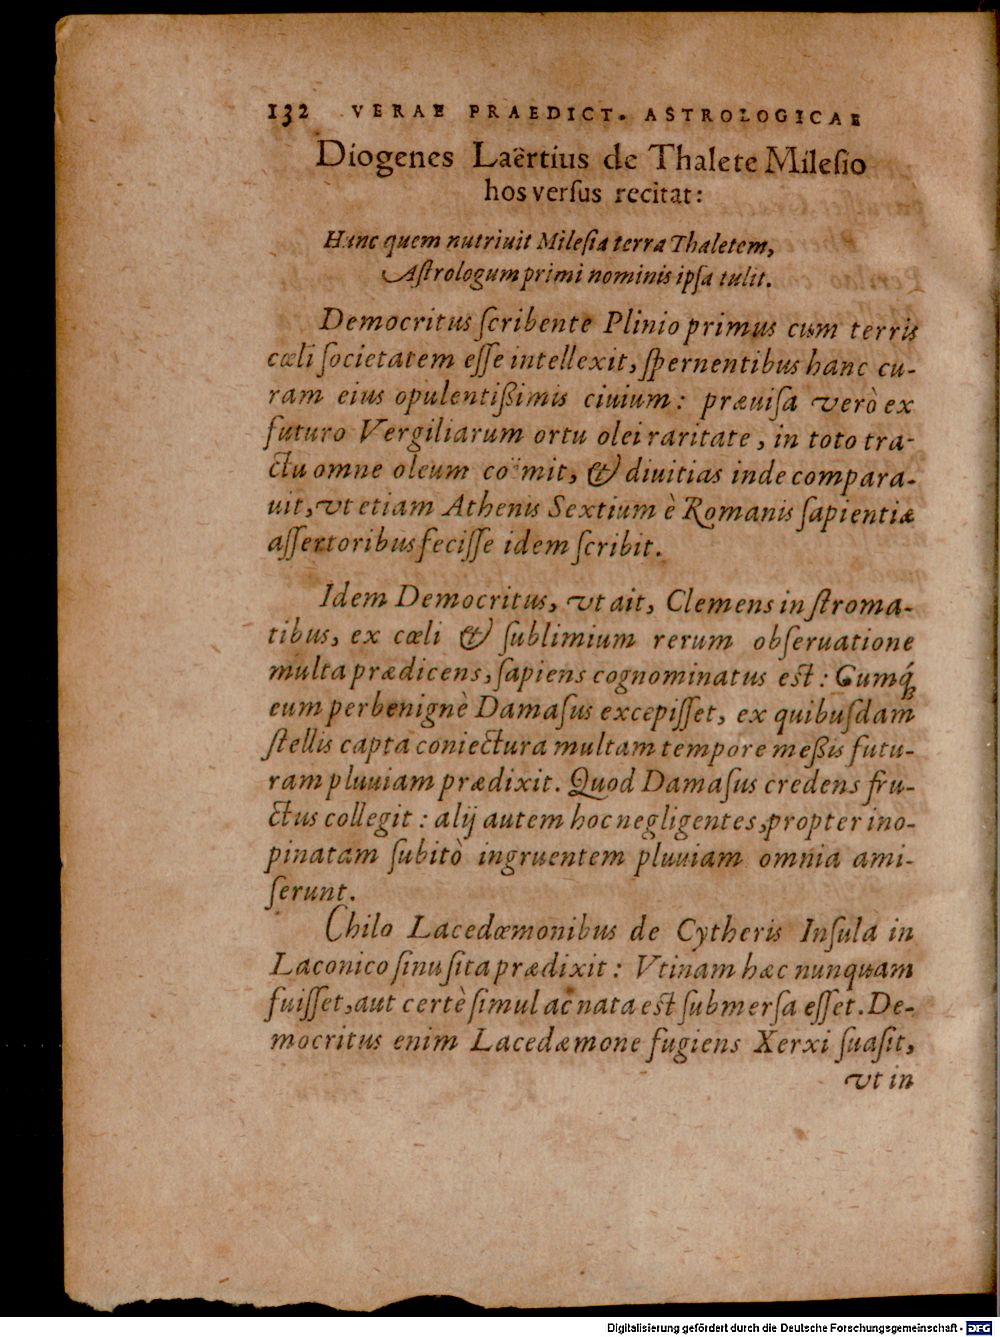 132 VERAE PRAEDICT. ASTROLOGICAE
Diogenes Laërtius de Thalete Mileſio
hos verſus recitat:
Hunc quem nutriuit Mileſia terra Thaletem,
Aſtrologum primi nominis ipſa tulit.
Democritus ſcribente Plinio primus cum terris
cœli ſocietatem eſſe intellexit, ſpernentibus hanc cu-
ram eius opulentißimis ciuium: præuiſa verò ex
futuro Vergiliarum ortu olei raritate, in toto tra-
ctu omne oleum coëmit, & diuitias inde compara-
uit, vt etiam Athenis Sextium è Romanis ſapientiæ
aſſertoribus feciſſe idem ſcribit.
Idem Democritus, vt ait, Clemens in ſtroma-
tibus, ex cœli & ſublimium rerum obſeruatione
multa prædicens, ſapiens cognominatus eſt: Cumq́;
eum perbenignè Damaſus excepiſſet, ex quibuſdam
ſtellis capta coniectura multam tempore meßis futu-
ram pluuiam prædixit. Quod Damaſus credens fru-
ctus collegit: alij autem hoc negligentes, propter ino-
pinatam ſubitò ingruentem pluuiam omnia ami-
ſerunt.
Chilo Lacedæmonibus de Cytheris Inſula in
Laconico ſinu ſita prædixit: Vtinam hæc nunquam
fuiſſet, aut certè ſimul ac nata eſt ſubmerſa eſſet. De-
mocritus enim Lacedæmone fugiens Xerxi ſuaſit,
vt in
Digitalisierung gefördert durch die Deutsche Forschungsgemeinschaft - DFG